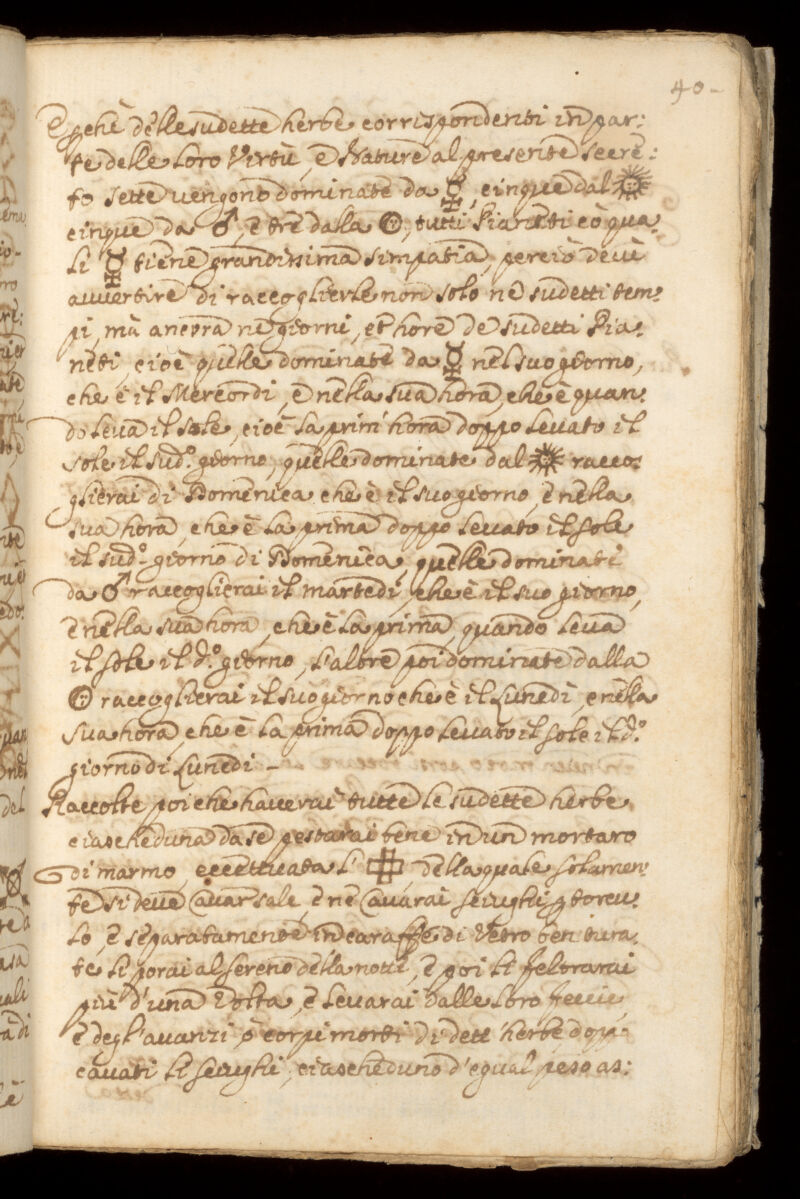 40
E p̱che delle sudette herbe corrispondenti in par:
te delle loro Virtù, e Nature al presente secre:
to sette vengono dominate da ☿, cinque dal ☀
cinque da ♂, e tre dalla 🌕, tutti Pianeti cò qua
li ☿ tiene grandissima simpatia, perciò devi
avvertire di raccoglierle non solo ne sudetti tem:
pi, mà ancora ne giorni, et hore de sudetti Pia:
neti, cioè quelle dominate da ☿ nel suo giorno,
che è il Mercordi, e nella sua hora, che è quan:
do leva il sole, cioè la prim' hora doppo levato il
sole il sud.º giorno, quelle dominate dal ☀ racco:
glierai di Domenica che è il suo giorno, e nella
sua hora, che è la prima doppo levato il sole
il sud.º giorno di Domenica, quelle dominati
da ♂ raccoglierai il martedi, che è il suo giorno,
e nella sua hora, che è la prima, quando leva
il sole il d.º giorno, l'altre poi dominate dalla
🌕 raccoglierai il suo giorno che è il Lunedì, e nella
sua hora, che è la prima doppo levato il sole il d.º
giorno di Lunedi -
Raccolte poi che haverai tutte le sudette herbe
ciascheduna da se pestarai bene in un mortaro
di marmo, eccettuata l' , della quale solamen:
te si deve cavar sale, e ne cavarai sciughi p̱ torcu:
lo, e separatamente in caraffe di Vetro ben tura:
te li porai al sereno della notte, e poi li feltrarai
più d'una volta, e levarai dalle loro feccie,
e degl'avanzi, ò corpi morti di dett' herbe, dopp:
cavati li sciughi, ciascheduno d'egual peso as: